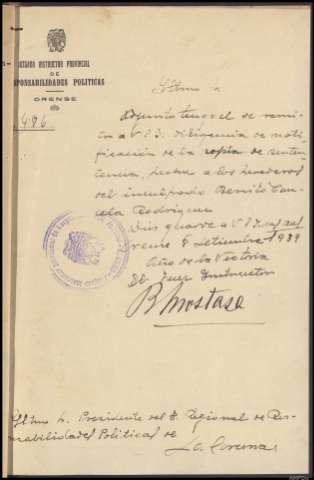 JUZGADO INSTRUCTOR PROVINCIAL
DE
RESPONSABILIDADES POLITICAS
ORENSE
486
Iltmo Sr
Adjunto tengo el de remi
tir a V.I. diligencia de noti
ficación de la copia de senten
tencia, hecha a los herederos
del inculpado Benito
Rodriguez
Dios guarde a V.I.
rense 8 Setiembre 1939
Año de la Victoria
El Juez Instructor
BMostaza
Iltmo Sr. Presidente del T. Regional de Res-
ponsabilidades Politicas de
La Coruna